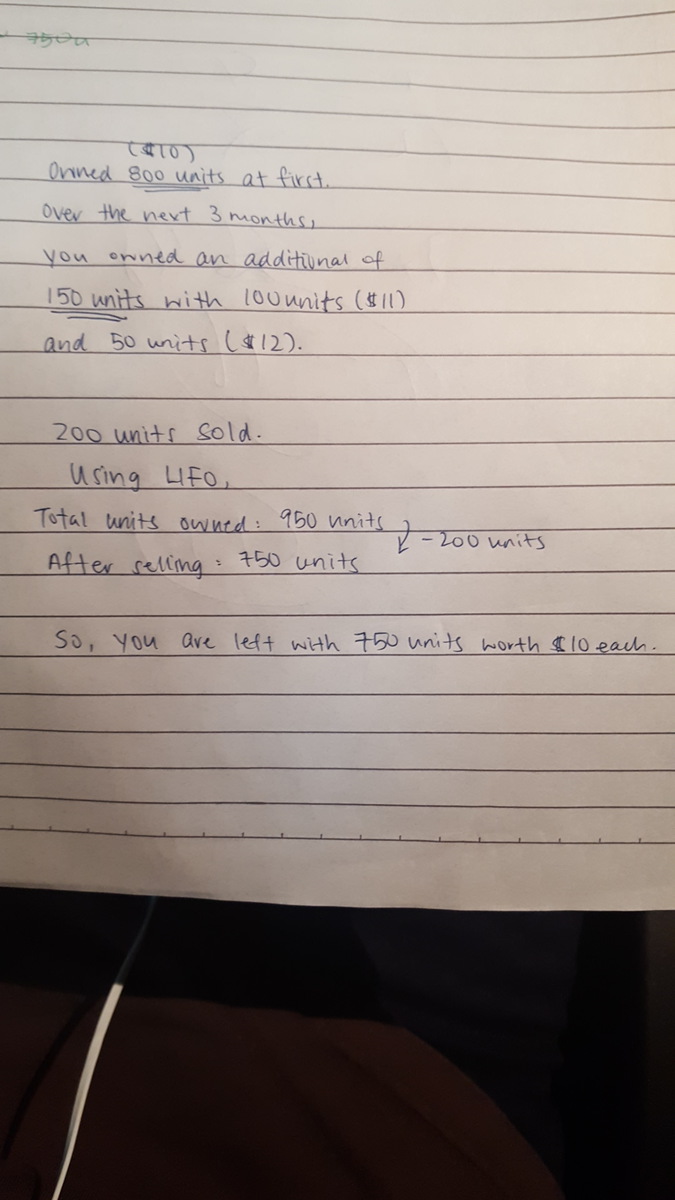 750u
($10)
Owned 800 units at first.
Over the next 3 months,
you owned an additional of
150 units with 100 units ($11)
and 50 units ($12).
200 units sold.
Using LIFO,
Total units owned: 950 units
- 200 units
After selling: 750 units
So, you are left with 750 units worth $10 each.